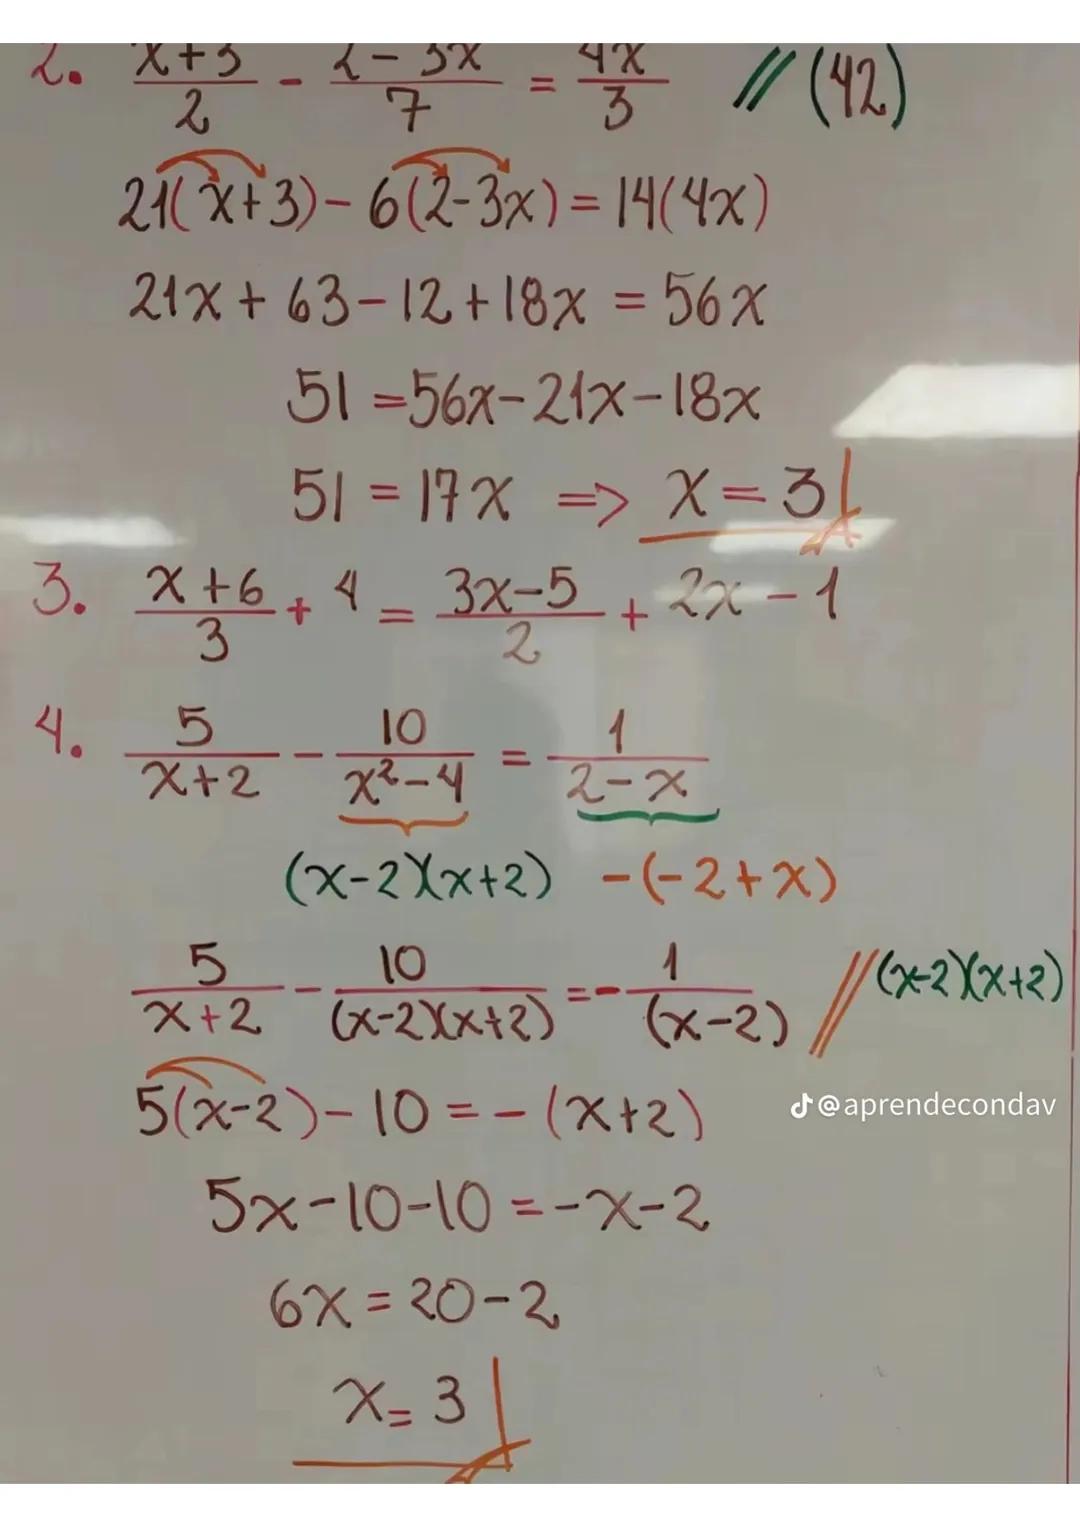 2. x+3/2 - 2-3x/7 = 4x/3 // (42)
21(x+3)-6(2-3x)=14(4x)
21x+63-12+18x=56x
51=56x-21x-18x
51=17x => x=3
3. x+6/3 + 4 = 3x-5/2 + 2x-1
4. 5/x+2 - 10/x²-4 = 1/2-x
(x-2)(x+2) -(-2+x)
5/x+2 - 10/(x-2)(x+2) = - 1/(x-2) // (x-2)(x+2)
5(x-2)-10=-(x+2)
@aprendecondav
5x-10-10=-x-2
6x=20-2
x=3